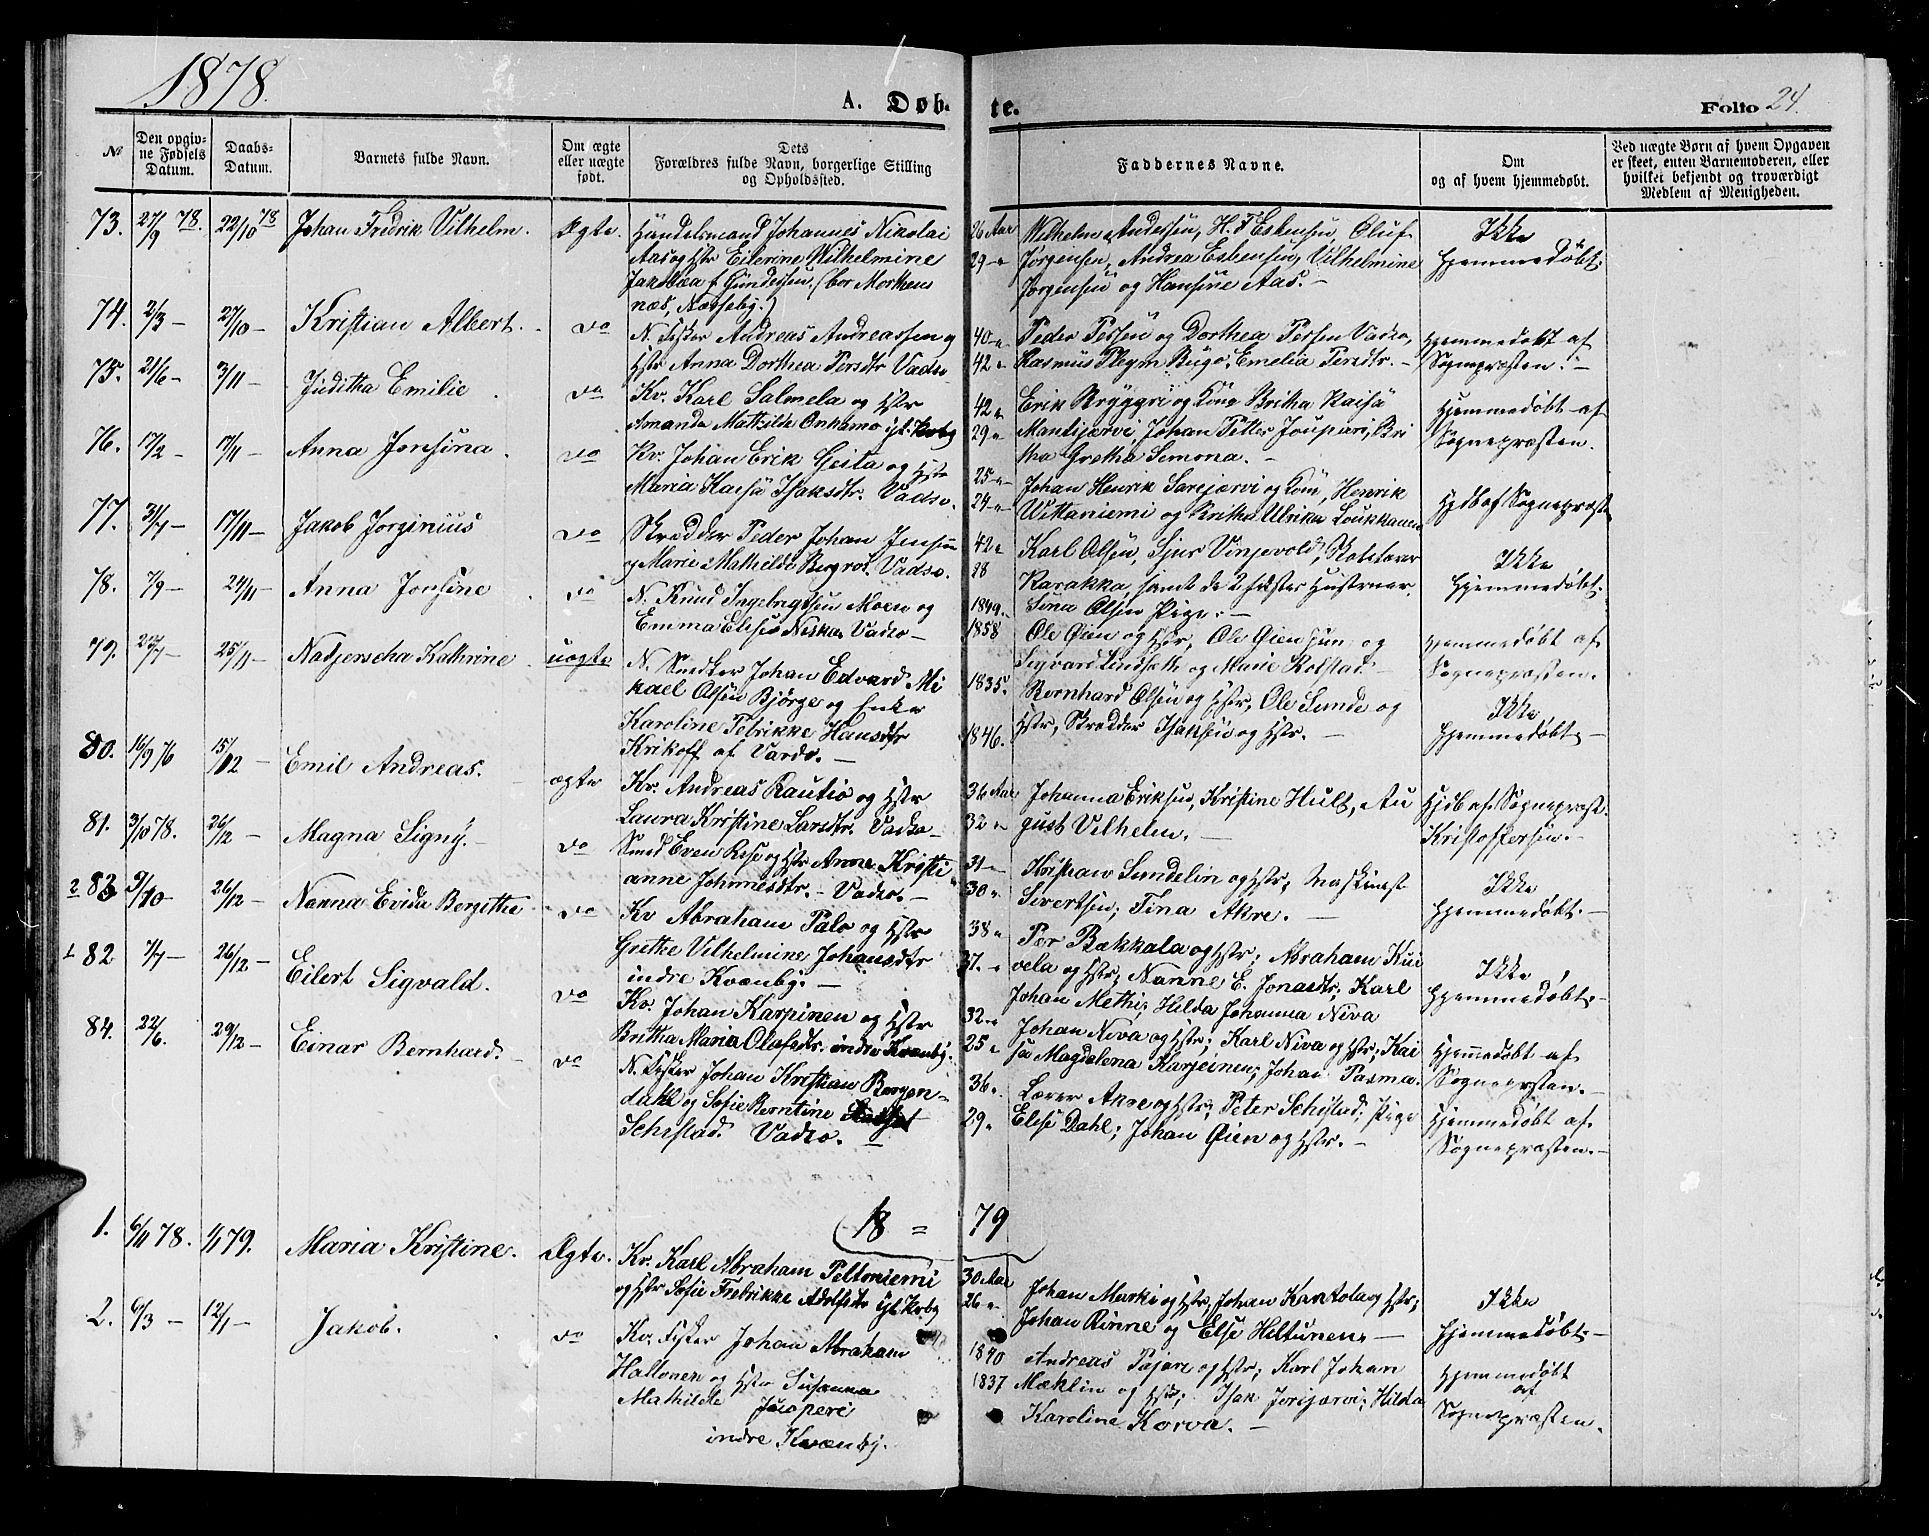 1878.
A. Døb-
te.
Folio 24.
No
Den opgiv-
ne Fødsels
Datum.
Daabs-
Datum.
Barnets fulde Navn.
Om ægte
eller uægte
født.
Dets
Forældres fulde Navn, borgerlige Stilling
og Opholdssted.
Faddernes Navne.
Om
og af hvem hjemmedøbt.
Ved uægte Børn af hvem Opgaven
er skeet, enten Barnemoderen, eller
hvilket bekjendt og troværdigt
Medlem af Menigheden.
73. 27/9 78. 22/10 78 Johan Fredrik Vilhelm. Ægte.
Handelsmand Johannes Nikolai
Aas og Hstr Eilerine Wilhelmine
Jakobæa f. Gundersen. (bor Mortens
næs, Næsseby.)
26 Aar
29 - "
Wilhelm Andersen, H. T. Esbensen, Oluf
Jørgensen, Andrea Esbensen, Vilhelmine
Jørgensen og Hansine Aas. -
Ikke
hjemmedøbt.
74. 2/3 - 27/10 - Kristian Albert. do
N. Fisker Andreas Andreassen og
Hstr Anna Dorthea Persdtr Vadsø
40 - "
42 "
Peder Persen og Dorthea Persen Vadsø,
Rasmus Plym Bugø, Emelia Persdtr. -
Hjemmedøbt af
Sognepræsten. -
75. 21/6 - 3/11 - Juditha Emilie. do
Kv. Karl Salmela og Hstr
Amanda Mathilde Onkamo
42 "
29 "
Erik Bryggri og Kone Britha Kaisa
Mantijærvi, Johan Petter Joupari, Bri
tha Gretha Simona. -
Hjemmedøbt af
Sognepræsten.
76. 17/2 - 17/11 - Anna Jonsina. do
Kv. Johan Erik Geita og Hstr
Maria Kaisa Isaksdtr. Vadsø.
25 - "
24 - "
Johan Henrik Sarejærvi og Kone, Henrik
Wittaniemi og Britha Ulrika Loukkanen
Hjdb af Sognepræst
77. 31/7 - 17/11 - Jakob Jorginius do
Skrædder Peder Johan Jensen
og Marie Mathilde Bergvot. Vadsø.
42 "
38
Karl Olsen, Sjur Vinjevold,
Karakka, samt de 2 første Hustruer,
Sina Olsen Pige. -
Ikke
hjemmedøbt.
78. 7/9 - 24/11 - Anna Jonsine. do
N. Knud Ingebrigtsen Moen og
Emma Elisa Niska Vadsø -
1849.
1858
Ole Øien og Hstr, Ole Øien jun. og
Sigvard Lindseth og Marie Rolstad.
Hjemmedøbt af
Sognepræsten.
79. 25/11 - Nadjerscha Kathrine. uægte
N. Snedker Johan Edvard Mi
kael Olsen Bjørge og Enke
Karoline Fedrikke Hansdtr
Krikoff af Vardø. -
1835.
1846.
Bernhard Olsen og Hstr, Ole Sunde og
Hstr, Skrædder Isaksen og Hstr. -
Ikke
hjemmedøbt -
80. 16/9 76 15/12 - Emil Andreas. ægte
Kv. Andreas Rautio og Hstr
Laura Kristine Larsdtr. Vadsø -
36 Aar
32 "
Johanna Eriksen, Kristine Hult, Au
gust Vilhelm. -
Hjdb af Sognepræst.
Kristoffersen. -
81. 3/10 78. 26/12 - Magna Signy. - do
Smed Even Rese og Hstr Anne Kristi
anne Johannesdtr. - Vadsø. -
31 -
30 "
Kristian Sundelin og Hstr; Maskinist
Sivertsen; Tina Akre. -
Ikke
hjemmedøbt. -
2 83 9/10 - 26/12 - Nanna Evida Bergithe do
Kv Abraham Palo og Hstr
Grethe Vilhelmine Johansdtr
indre Kvænby. -
38 "
37. - "
Per Bækkala og Hstr; Abraham Kui
vela og Hstr; Nanne E. Jonasdtr; Karl
Johan Methi; Hilda Johanna Niva
Ikke
hjemmedøbt. -
1 82 7/7 - 26/12 - Eilert Sigvald. do
Kv. Johan Karpinen og Hstr
Britha Maria Olafsdtr. indre Kvænby.
32 - "
25 "
Johan Niva og Hstr; Karl Niva og Hstr; Kai
sa Magdalena Karjeinen; Johan Pasma.
Hjemmedøbt af
Sognepræsten. -
84. 22/6. 29/12 - Einar Bernhard. - do
N. Fisker Johan Kristian Bergen-
dahl og Sofie Berntine
Schistad. Vadsø. -
36 "
29 "
Lærer Akre og Hstr; Peter Schistad; Pige
Elise Dahl; Johan Øien og Hstr. -
Hjemmedøbt af
Sognepræsten. -
18 = 79
1. 6/11 78. 1/1 79. Maria Kristine. Ægte.
Kv. Karl Abraham Peltoniemi
og Hstr Sofie Fredrikke Adolfsdtr
30 Aar
26 - "
Johan Marki og Hstr; Johan Kantola og Hstr;
Johan Rinne og Else Hiltunen. -
Ikke
hjemmedøbt. -
2. 6/3 - 12/1 - Jakob. do
Kv. Fisker Johan Abraham
Haltonen og Hstr Susanna
Mathilde Juoperi
indre Kvænby.
1840
1837
Andreas Pajari og Hstr; Karl Johan
Mæklin og Hstr; Isak Jorijærvi; Hilda
Karoline Korva. -
Hjemmedøbt
af
Sognepræsten.